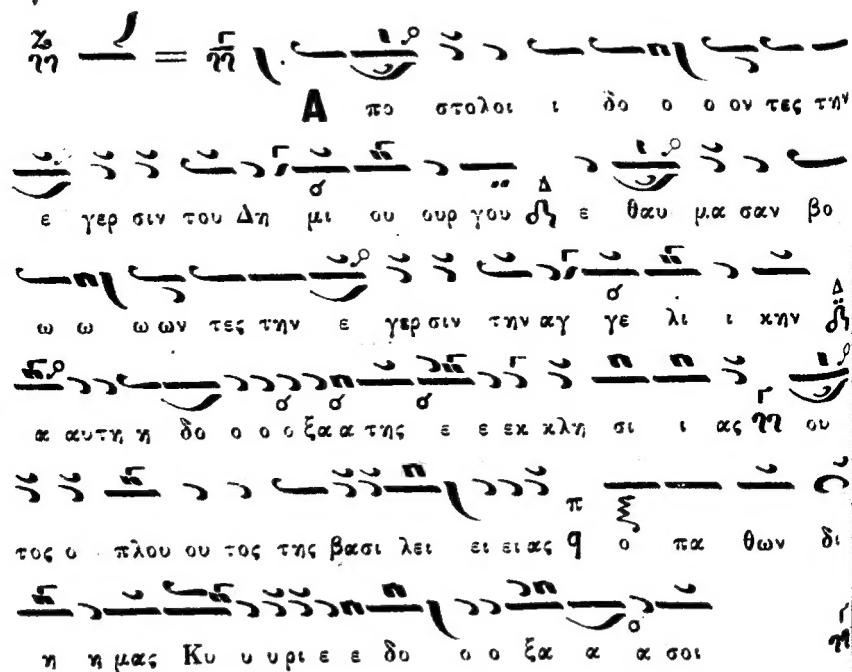 Α πο στολοι ι δο ο ο ον τες την
ε γερ σιν του Δη μι ου ουρ γου ε θαυ μα σαν βο
ω ω ω ων τες την ε γερ σιν την αγ γε λι ι κην
α αυτη η δο ο ο ο ξα α της ε ε εκ κλη σι ι ας ου
τος ο πλου ου τος της βασι λει ει ει ας ο πα θων δι
η η μας Κυ υ υ ρι ε ε δο ο ο ξα α α σοι